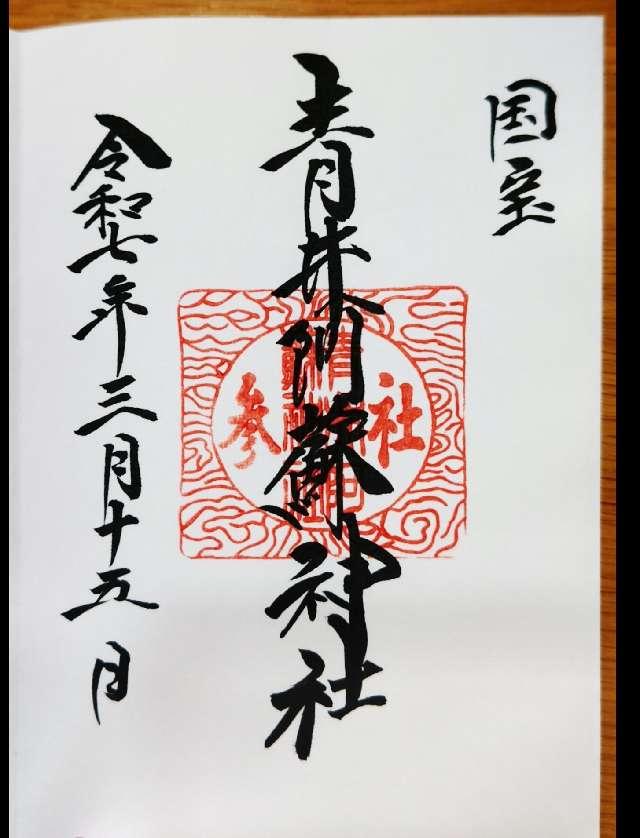 国宝
青井阿蘇神社
社参
令和七年三月十五日